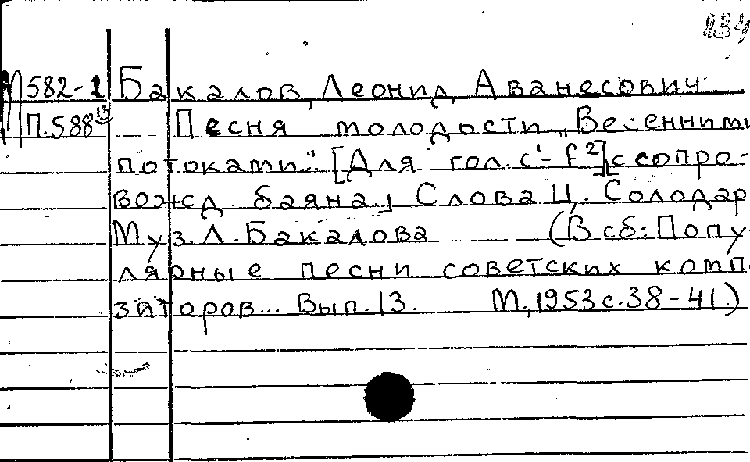 М582-1 Бакалов, Леонид Аванесович
П.588 Песня молодости „Весенними
потоками". [Для гол. c¹-f²] с сопро-
вожд. баяна, Слова Ц. Солодар
Муз. Л. Бакалова (В сб: Попу
лярные песни советских комп
зиторов... Вып. 13. М, 1953 с. 38-41.)